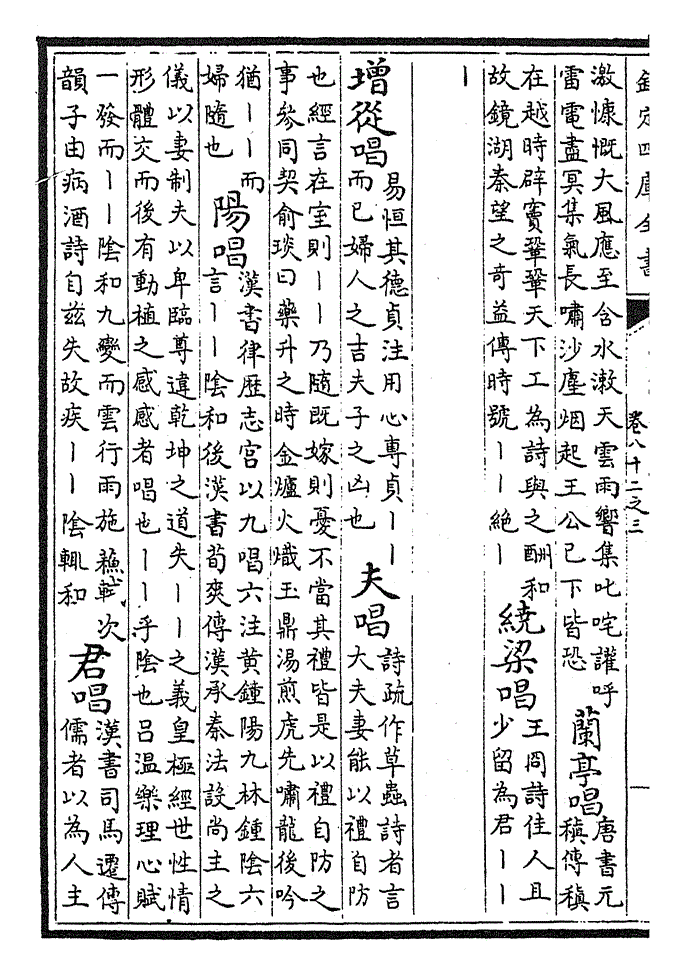 欽定四庫全書
卷八十二之三
激慷慨大風應至含水漱天雲雨響集叱咤讙呼
雷電盡冥集氣長嘯沙塵烟起王公已下皆恐
蘭亭唱
唐書元
稹傳稹
在越時辟竇鞏鞏天下工為詩與之酬和
故鏡湖秦望之奇益傳時號丨丨絶丨
繞梁唱
王冏詩佳人且
少留為君丨丨
丨
增從唱
易恒其德貞注用心專貞丨丨
而已婦人之吉夫子之凶也
夫唱
詩疏作草蟲詩者言
大夫妻能以禮自防
也經言在室則丨丨乃隨既嫁則憂不當其禮皆是以禮自防之
事參同契俞琰曰藥升之時金爐火熾玉鼎湯煎虎先嘯龍後吟
猶丨丨而
婦隨也
陽唱
漢書律歷志宫以九唱六注黄鐘陽九林鍾陰六
言丨丨陰和後漢書荀爽傳漢承秦法設尚主之
儀以妻制夫以卑臨尊違乾坤之道失丨丨之義皇極經世性情
形體交而後有動植之感感者唱也丨丨乎陰也吕温樂理心賦
一發而丨丨陰和九變而雲行雨施蘇軾次
韻子由病酒詩自兹失故疾丨丨陰輒和
君唱
漢書司馬遷傳
儒者以為人主